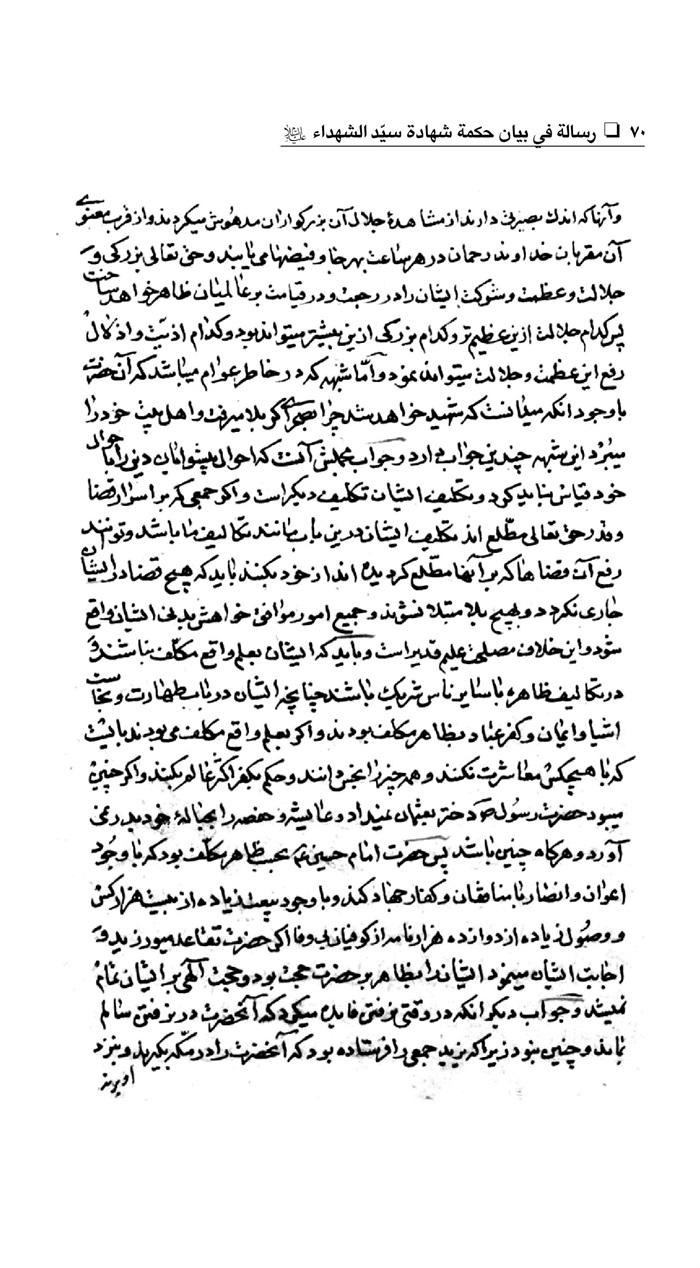 ٧٠ ❑ رسالة في بيان حكمة شهادة سيّد الشهداء عليه السلام
و آنها که اندك بصیرتی دارند از مشاهدهٔ جلال آن بزرکواران مدهوش میکردند و از قرب معنوی
آن مقربان خداوند رحمان در هر ساعت بهرها و فیضها می یابند و حق تعالی بزرکی و
جلالت و عظمت و شوکت ایشان را در رجعت و در قیامت بر عالمیان ظاهر خواهد ساخت
پس کدام جلالت ازین عظیم تر و کدام بزرکی ازین بیشتر میتواند بود و کدام اذیّت و اذلال
رفع این عظمت و جلالت میتواند نمود و امّا شبهه که در خاطر عوام میباشد که آنحضرت
با وجود انکه میدانست که شهید خواهد شد چرا بصحرای کربلا میرفت و اهل بیت خود را
میبرد این شبهه چندین جواب دارد و جواب مجملش آنست که احوال پیشوایان دین را با احوال
خود قیاس نباید کرد و تکلیف ایشان تکلیف دیکر است و اکر جمعی که بر اسرار قضا
و قدر حق تعالی مطّلع اند تکلیف ایشان درین باب مانند تکالیف ما باشد و توانند
رفع آن قضاها که بر آنها مطّلع کردیده اند از خود بکنند باید که هیچ قضا در ایشان
جاری نکردد و بهیچ بلا مبتلا نشوند و جمیع امور موافق خواهش بدنی ایشان واقع
شود و این خلاف مصلحت علیم قدیر است و باید که ایشان بعلم واقع مکلّف نباشند و
در تکالیف ظاهره با سایر ناس شریك باشند چنانچه ایشان در باب طهارت و نجاست
اشیا و ایمان و کفر عباد بظاهر مکلف بودند و اکر بعلم واقع مکلف می بودند بایست
که با هیچکس معاشرت نکنند و همه چیز را نجس دانند و حکم بکفر اکثر عالم بکنند و اکر چنین
میبود حضرت رسول ص دختر بعثمان نمیداد و عایشه و حفصه را بحبالهٔ خود در نمی
آورد و هرکاه چنین باشد پس حضرت امام حسین ع بحسب ظاهر مکلّف بود که با وجود
اعوان و انصار با منافقان و کفار جهاد کند و با وجود بیعت زیاده از بیست هزار کس
و وصول زیاده از دوازده هزار نامه از کوفیان بی وفا اکر حضرت تقاعد میورزید و
اجابت ایشان نمینمود ایشان را بظاهر بر حضرت حجت بود و حجت الهی بر ایشان تمام
نمیشد و جواب دیکر انکه در وقتی نرفتن فایده میکرد که آنحضرت در نرفتن سالم
بماند و چنین نبود زیرا که یزید جمعی را فرستاده بود که آنحضرت را در مکّه بکیرند و بنزد
او برند